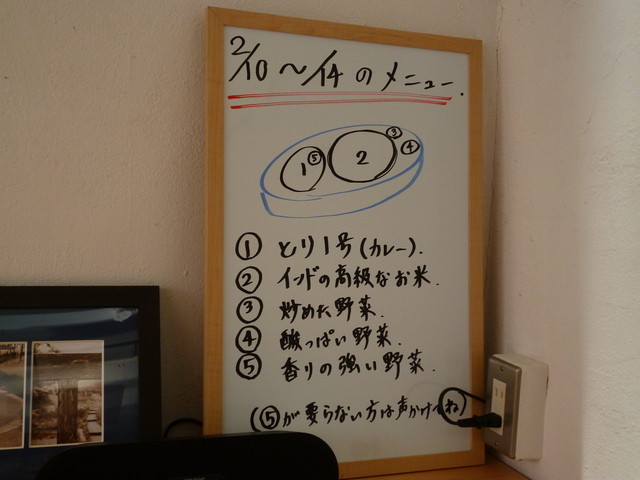 2/10〜/14のメニュー.
③
⑤
④
1
2
① とり1号(カレー).
② インドの高級なお米.
③ 炒めた野菜.
④ 酸っぱい野菜.
⑤ 香りの強い野菜.
(⑤が要らない方は声かけてね)